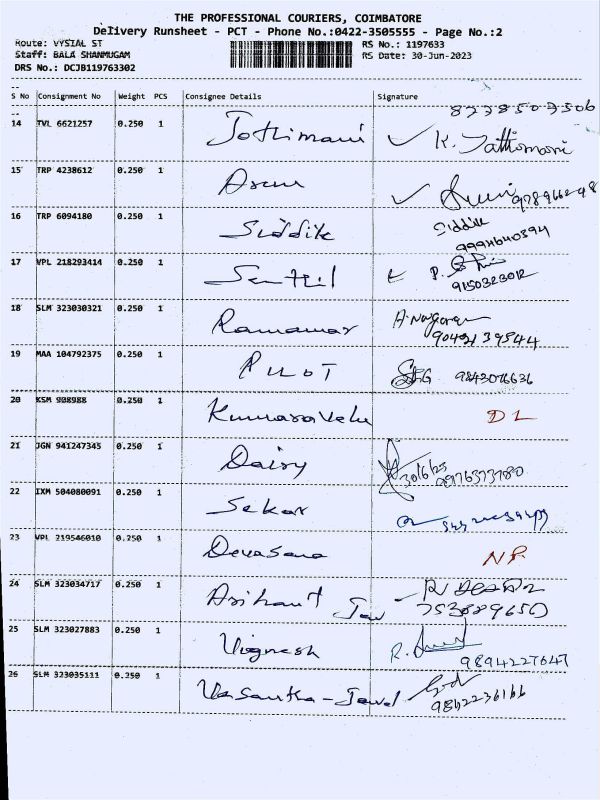 THE PROFESSIONAL COURIERS, COIMBATORE
Delivery Runsheet - PCT - Phone No.:0422-3505555 - Page No.:2
Route: VYSIAL ST
RS No.: 1197633
Staff: BALA SHANMUGAM
RS Date: 30-Jun-2023
DRS No.: DCJB119763302
S No Consignment No Weight PCS Consignee Details Signature
14 TVL 6621257 0.250 1 Jothimani K. Jothimani
15 TRP 4238612 0.250 1
16 TRP 6094180 0.250 1 Siddik Siddik
17 VPL 218293414 0.250 1 Senthil
9150323012
18 SLM 323030321 0.250 1
19 MAA 104792375 0.250 1 PILOT 9843076636
20 KSM 908988 0.250 1 Kumaravelu DL
21 JGN 941247345 0.250 1 Daisy
22 IXM 504080091 0.250 1 Sekar
23 VPL 219546010 0.250 1 Devasena
24 SLM 323034717 0.250 1 Arihant
25 SLM 323027883 0.250 1 Vignesh
9894227647
26 SLM 323035111 0.250 1 Vasantha - Jewel
9842236166